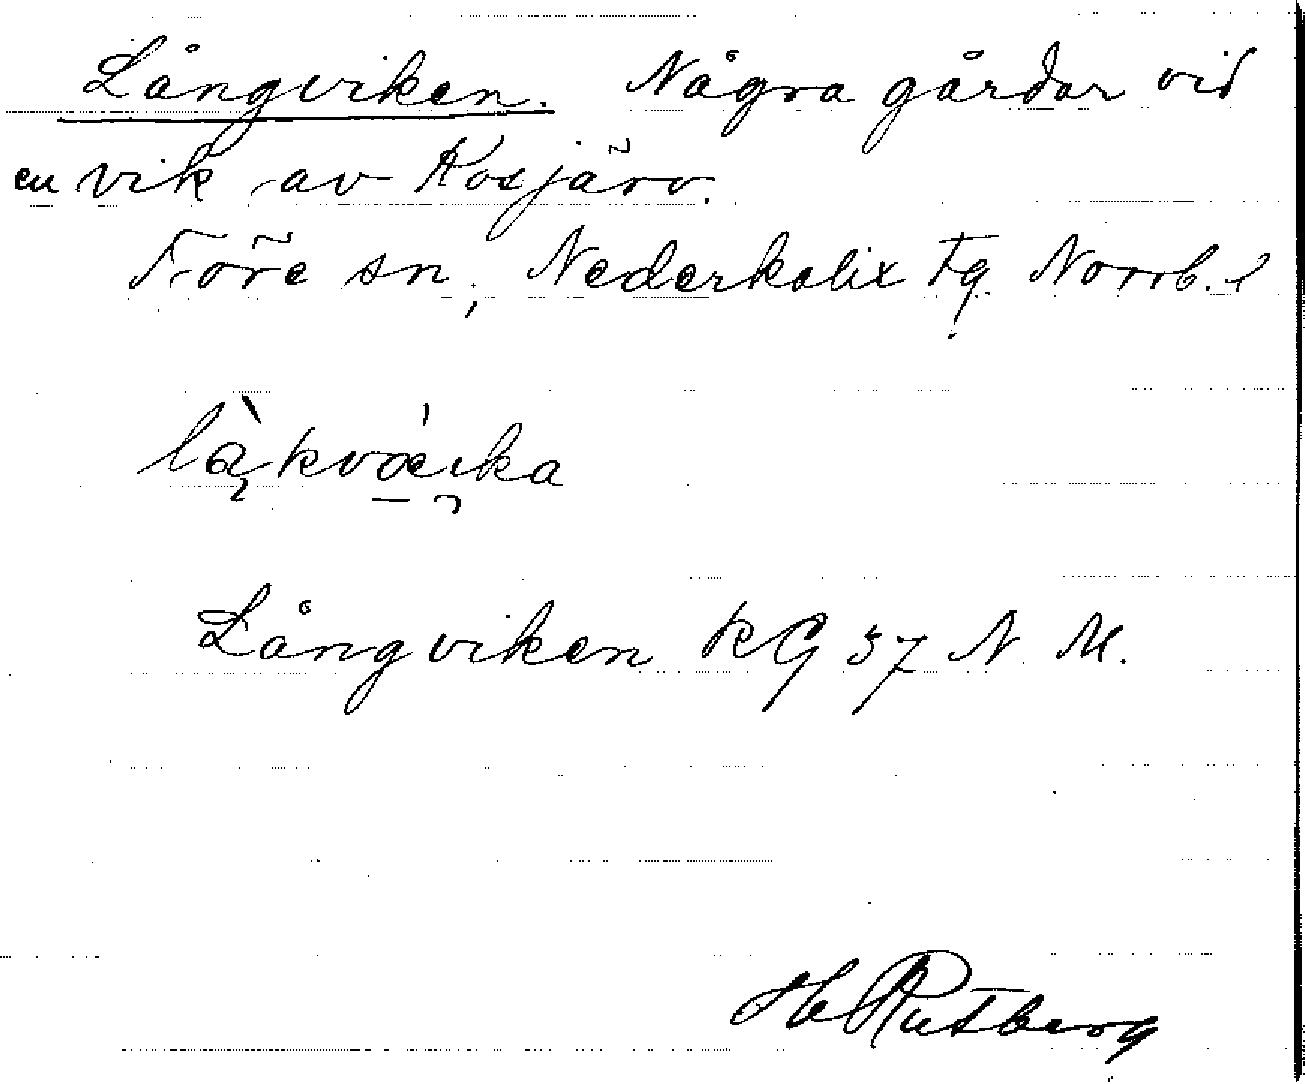 Långviken. Några gårdar vid
en vik av Kosjärv.
Töre sn, Nederkalix tg. Norrb. l
Långviken KG 37 N M.
H Rutberg